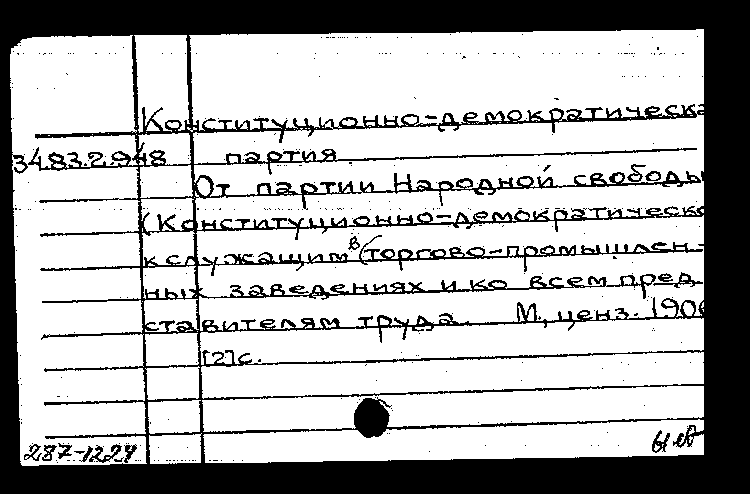 Конституционно-демократическа
3483.2.948 партия.
От партии Народной свободы
(Конституционно-демократическо
к служащим в торгово-промышлен-
ных заведениях и ко всем пред-
ставителям труда. М., ценз. 1906
[2] с.
287-1224